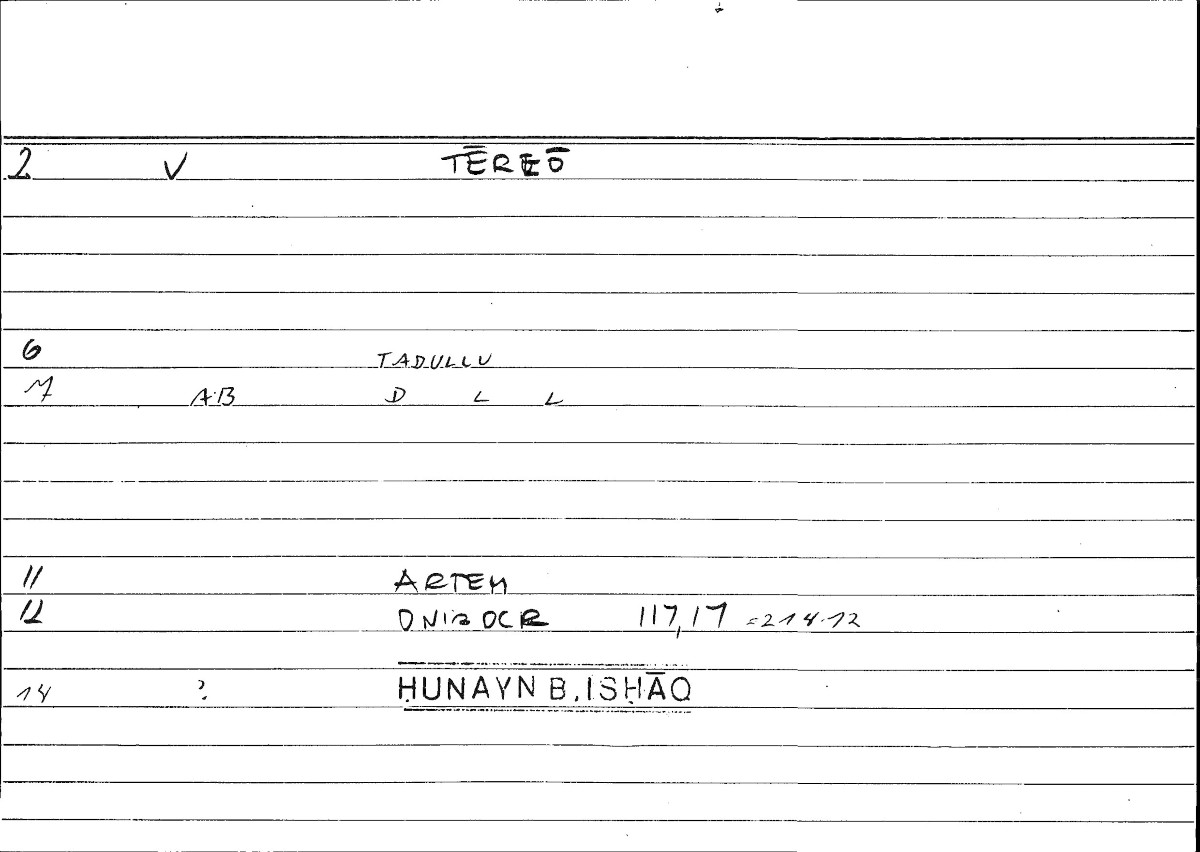 2 V TĒREŌ
6 TADULLU
7 AB D L L
11 ARTEM
12 ONIROCR 117,17 =214.12
14 ? ḤUNAYN B. ISḤĀQ